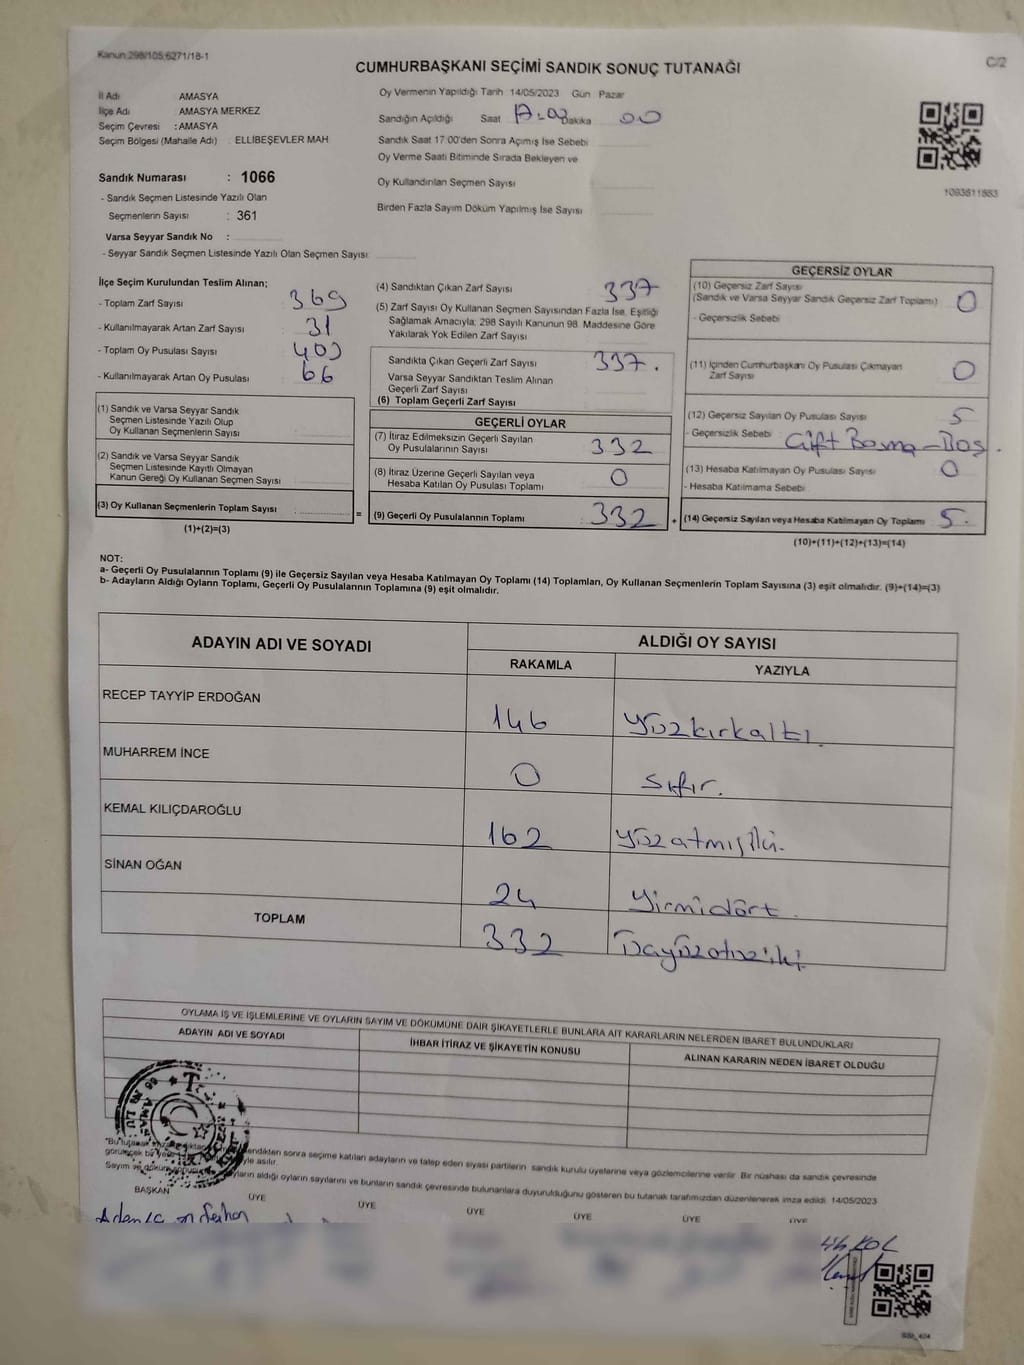 Kanun:298/105;6271/18-1
C/2
CUMHURBAŞKANI SEÇİMİ SANDIK SONUÇ TUTANAĞI
İl Adı AMASYA
İlçe Adı AMASYA MERKEZ
Seçim Çevresi : AMASYA
Seçim Bölgesi (Mahalle Adı) : ELLİBEŞEVLER MAH
Sandık Numarası : 1066
- Sandık Seçmen Listesinde Yazılı Olan
Seçmenlerin Sayısı : 361
Varsa Seyyar Sandık No :
- Seyyar Sandık Seçmen Listesinde Yazılı Olan Seçmen Sayısı:
Oy Vermenin Yapıldığı Tarih 14/05/2023 Gün Pazar
Sandığın Açıldığı Saat Dakika 00
Sandık Saat 17:00'den Sonra Açımış İse Sebebi
Oy Verme Saati Bitiminde Sırada Bekleyen ve
Oy Kullandırılan Seçmen Sayısı
Birden Fazla Sayım Döküm Yapılmış İse Sayısı
1093811883
İlçe Seçim Kurulundan Teslim Alınan;
- Toplam Zarf Sayısı 369
- Kullanılmayarak Artan Zarf Sayısı 31
- Toplam Oy Pusulası Sayısı
- Kullanılmayarak Artan Oy Pusulası 66
(1) Sandık ve Varsa Seyyar Sandık
Seçmen Listesinde Yazılı Olup
Oy Kullanan Seçmenlerin Sayısı
(2) Sandık ve Varsa Seyyar Sandık
Seçmen Listesinde Kayıtlı Olmayan
Kanun Gereği Oy Kullanan Seçmen Sayısı
(3) Oy Kullanan Seçmenlerin Toplam Sayısı :
(1)+(2)=(3)
=
(4) Sandıktan Çıkan Zarf Sayısı 337
(5) Zarf Sayısı Oy Kullanan Seçmen Sayısından Fazla İse, Eşitliği
Sağlamak Amacıyla, 298 Sayılı Kanunun 98. Maddesine Göre
Yakılarak Yok Edilen Zarf Sayısı
Sandıkta Çıkan Geçerli Zarf Sayısı 337.
Varsa Seyyar Sandıktan Teslim Alınan
Geçerli Zarf Sayısı
(6) Toplam Geçerli Zarf Sayısı
GEÇERLİ OYLAR
(7) İtiraz Edilmeksizin Geçerli Sayılan
Oy Pusulalarının Sayısı 332
(8) İtiraz Üzerine Geçerli Sayılan veya
Hesaba Katılan Oy Pusulası Toplamı 0
(9) Geçerli Oy Pusulalarının Toplamı 332
+
GEÇERSİZ OYLAR
(10) Geçersiz Zarf Sayısı
(Sandık ve Varsa Seyyar Sandık Geçersiz Zarf Toplamı) 0
- Geçersizlik Sebebi
(11) İçinden Cumhurbaşkanı Oy Pusulası Çıkmayan
Zarf Sayısı 0
(12) Geçersiz Sayılan Oy Pusulası Sayısı 5
- Geçersizlik Sebebi Çift Basma - Boş.
(13) Hesaba Katılmayan Oy Pusulası Sayısı 0
- Hesaba Katılmama Sebebi
(14) Geçersiz Sayılan veya Hesaba Katılmayan Oy Toplamı 5.
(10)+(11)+(12)+(13)=(14)
NOT:
a- Geçerli Oy Pusulalarının Toplamı (9) ile Geçersiz Sayılan veya Hesaba Katılmayan Oy Toplamı (14) Toplamları, Oy Kullanan Seçmenlerin Toplam Sayısına (3) eşit olmalıdır. (9)+(14)=(3)
b- Adayların Aldığı Oyların Toplamı, Geçerli Oy Pusulalarının Toplamına (9) eşit olmalıdır.
ADAYIN ADI VE SOYADI
ALDIĞI OY SAYISI
RAKAMLA YAZIYLA
RECEP TAYYİP ERDOĞAN 146 Yüzkırkaltı.
MUHARREM İNCE 0 Sıfır.
KEMAL KILIÇDAROĞLU 162 Yüzatmışiki.
SİNAN OĞAN 24 Yirmidört.
TOPLAM 332
OYLAMA İŞ VE İŞLEMLERİNE VE OYLARIN SAYIM VE DÖKÜMÜNE DAİR ŞİKAYETLERLE BUNLARA AİT KARARLARIN NELERDEN İBARET BULUNDUKLARI
ADAYIN ADI VE SOYADI
İHBAR İTİRAZ VE ŞİKAYETİN KONUSU
ALINAN KARARIN NEDEN İBARET OLDUĞU
sonra seçime katılan adayların ve talep eden siyasi partilerin sandık kurulu üyelerine veya gözlemcilerine verilir. Bir nüshası da sandık çevresinde
asılır.
Sayım ve aldığı oyların sayılarını ve bunların sandık çevresinde bulunanlara duyurulduğunu gösteren bu tutanak tarafımızdan düzenlenerek imza edildi. 14/05/2023
BAŞKAN ÜYE ÜYE ÜYE ÜYE ÜYE ÜYE